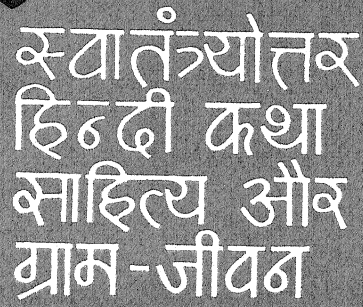 स्वातंत्र्योत्तर
हिन्दी कथा
साहित्य और
ग्राम-जीवन